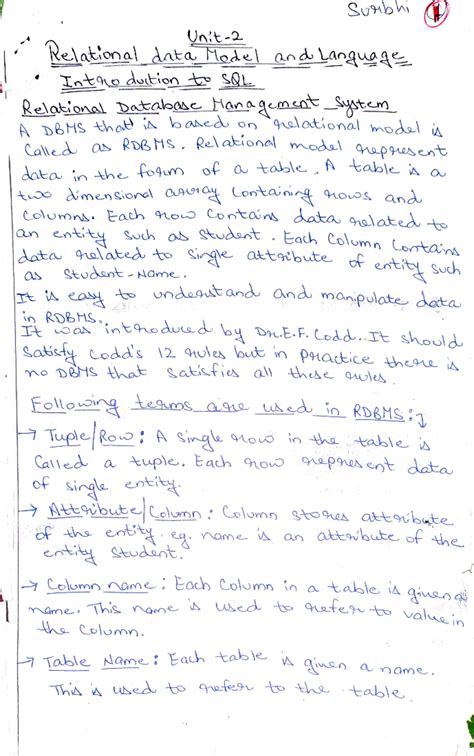 Surbhi 1
Unit-2
Relational data Model and Language
Introduction to SQL
Relational Database Management System
A DBMS that is based on relational model is
Called as RDBMS. Relational model represent
data in the form of a table. A table is a
two dimensional array Containing rows and
Columns. Each row Contains data related to
an entity such as student. Each Column Contains
data related to single attribute of entity such
as Student-Name.
It is easy to understand and manipulate data
in RDBMS.
It was introduced by Dr.E.F.Codd. It should
Satisfy Codd's 12 rules but in practice there is
no DBMS that satisfies all these rules.
Following terms are used in RDBMS:
→ Tuple/Row: A Single row in the table is
Called a tuple. Each row represent data
of single entity.
→ Attribute/Column: Column stores attribute
of the entity. eg. name is an attribute of the
entity Student.
→ Column name: Each Column in a table is given a
name. This name is used to refer to value in
the Column.
→ Table Name: Each table is given a name.
This is used to refer to the table.